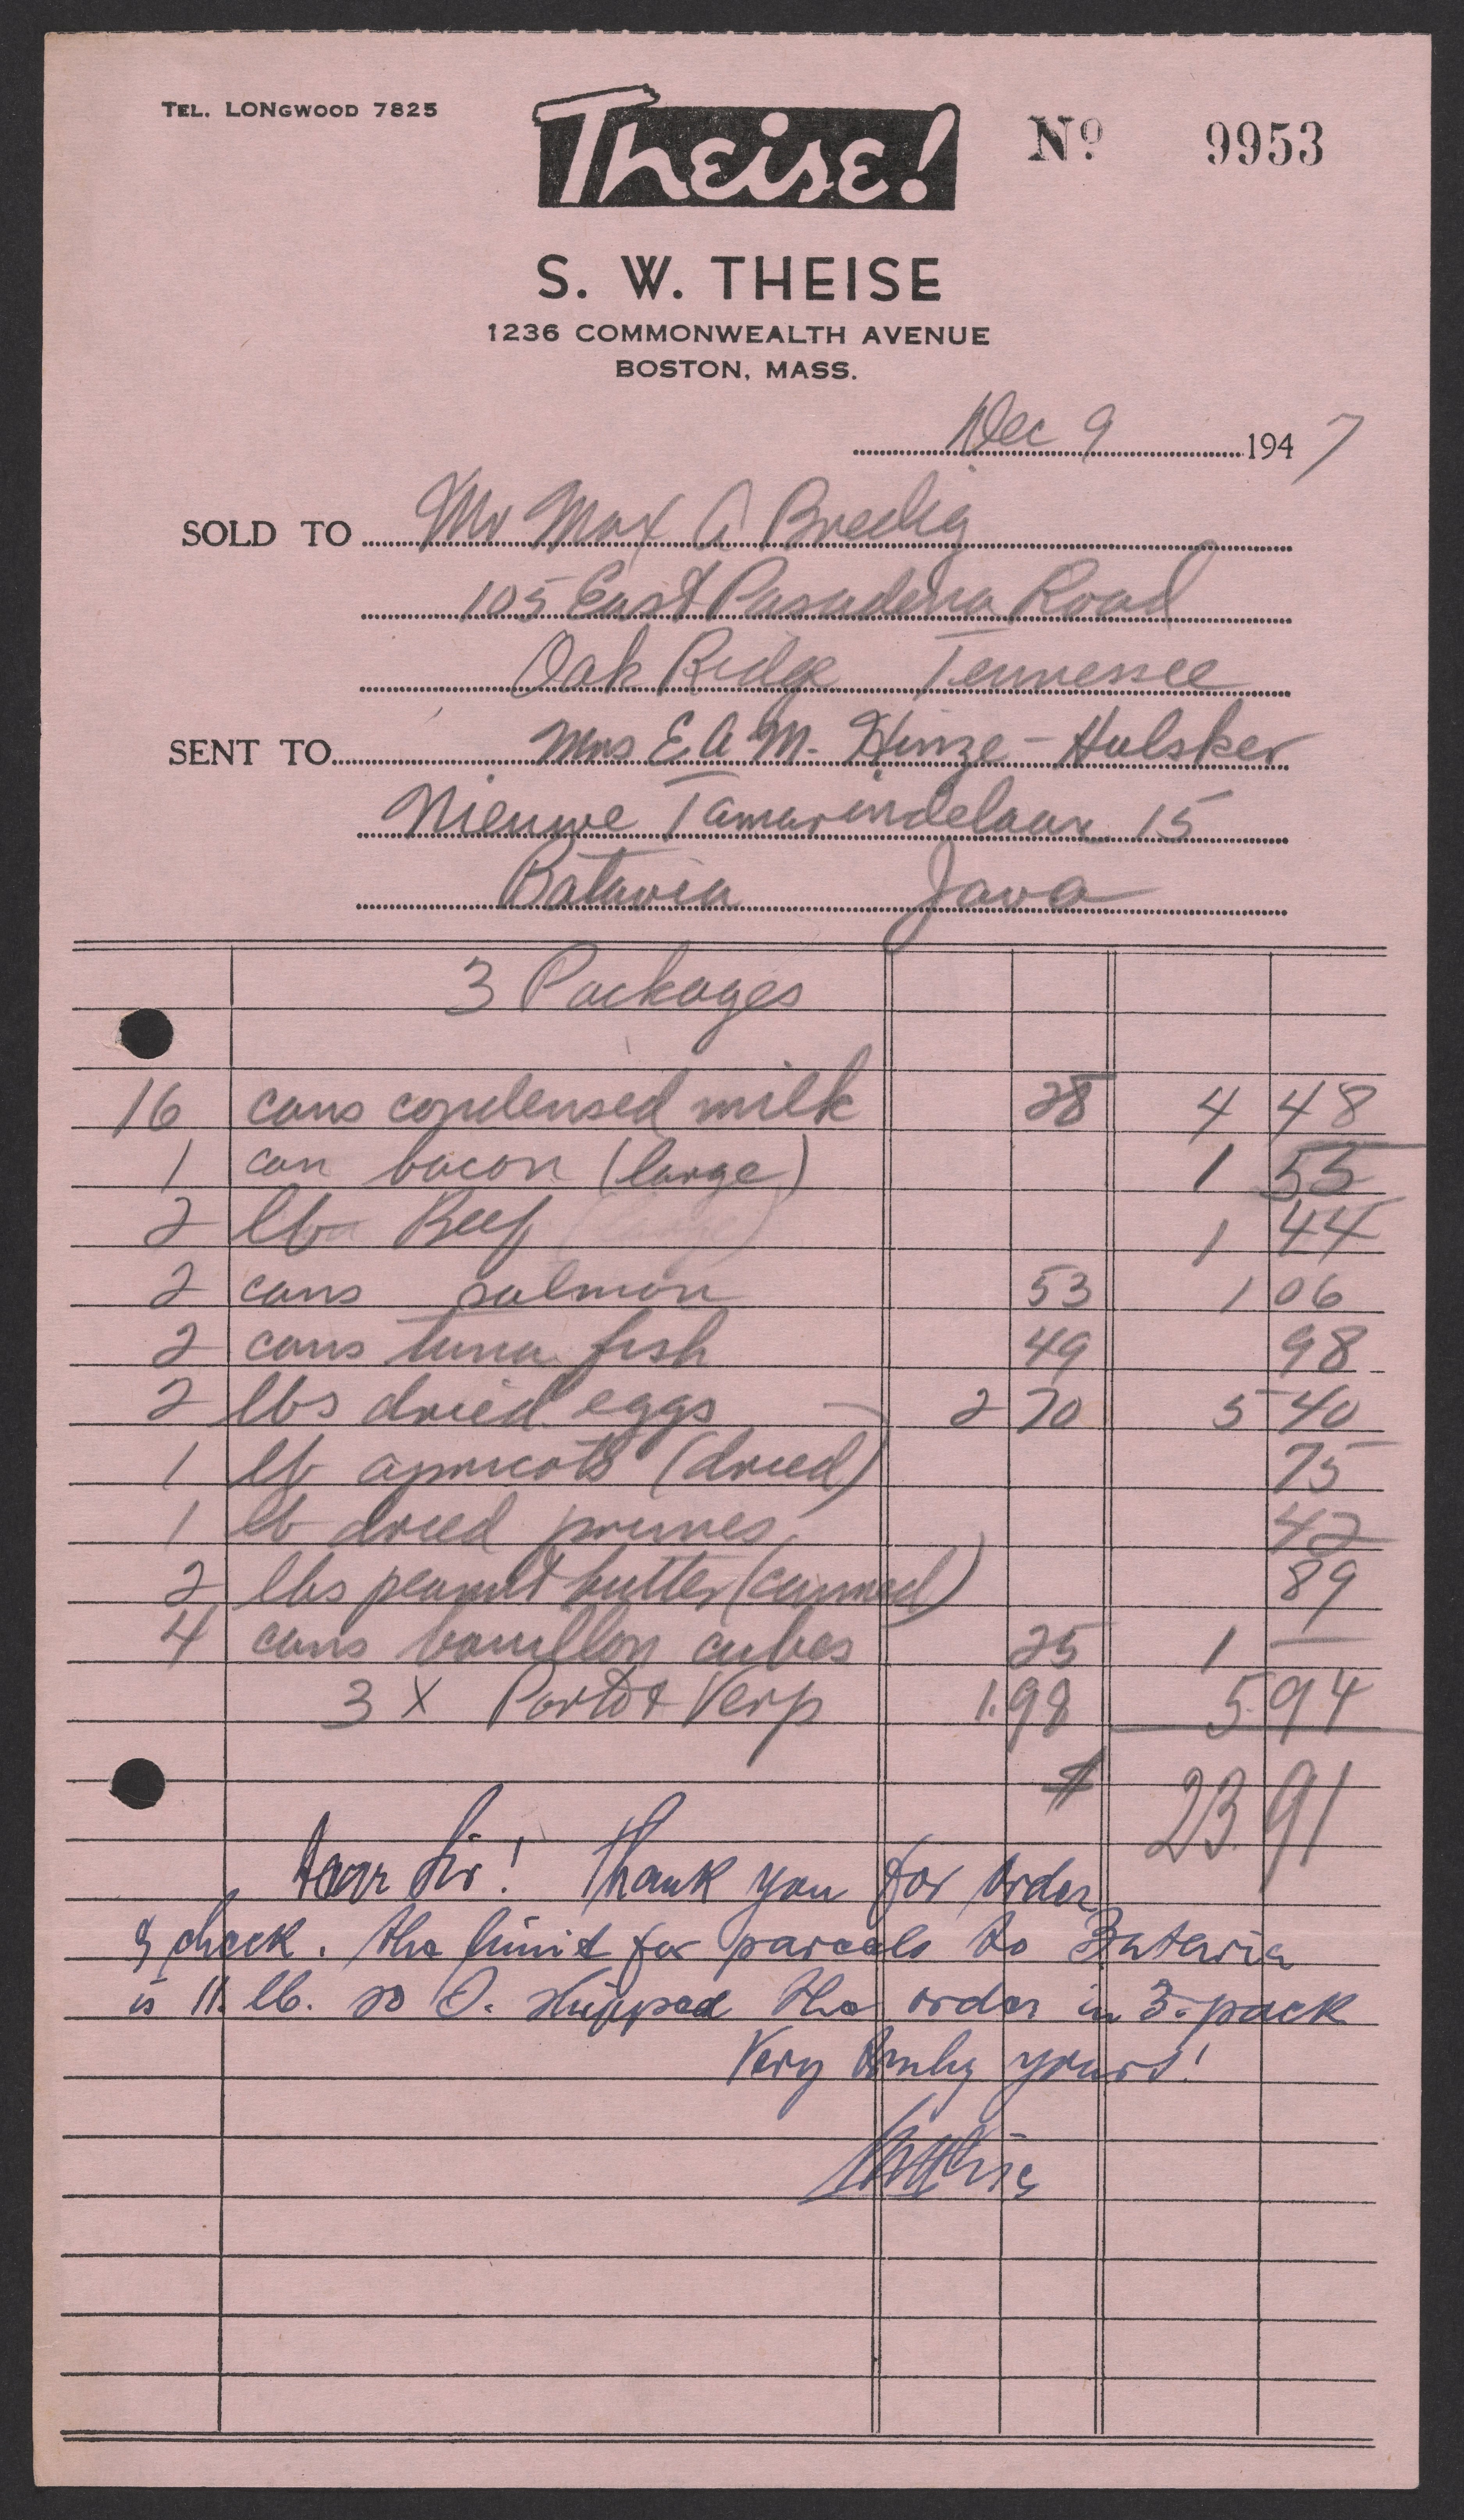 TEL. LONGWOOD 7825
Theise!
Nº 9953
S. W. THEISE
1236 COMMONWEALTH AVENUE
BOSTON, MASS.
Dec 9 1947
SOLD TO Mr Max A Bredig
105 East Pasadena Road
Oak Ridge Tennessee
SENT TO Mrs E A M. Hinze-Hulsker
Nieuwe Tamarindelaan 15
Batavia Java
3 Packages
16 cans condensed milk 28 4 48
1 can bacon (large) 1 55
2 lb Beef 1 44
2 cans salmon 53 1 06
2 cans tuna fish 49 98
2 lbs dried eggs 2 70 5 40
1 lb apricots (dried) 75
1 lb dried prunes 42
2 lbs peanut butter (canned) 89
4 cans bouillon cubes 25 1 —
3 X Porto & Verp 1.98 5.94
$ 23.91
Dear Sir! Thank you for order
& check. The limit for parcels to Batavia
is 11. lb. so I. shipped the order in 3. pack
Very truly yours!